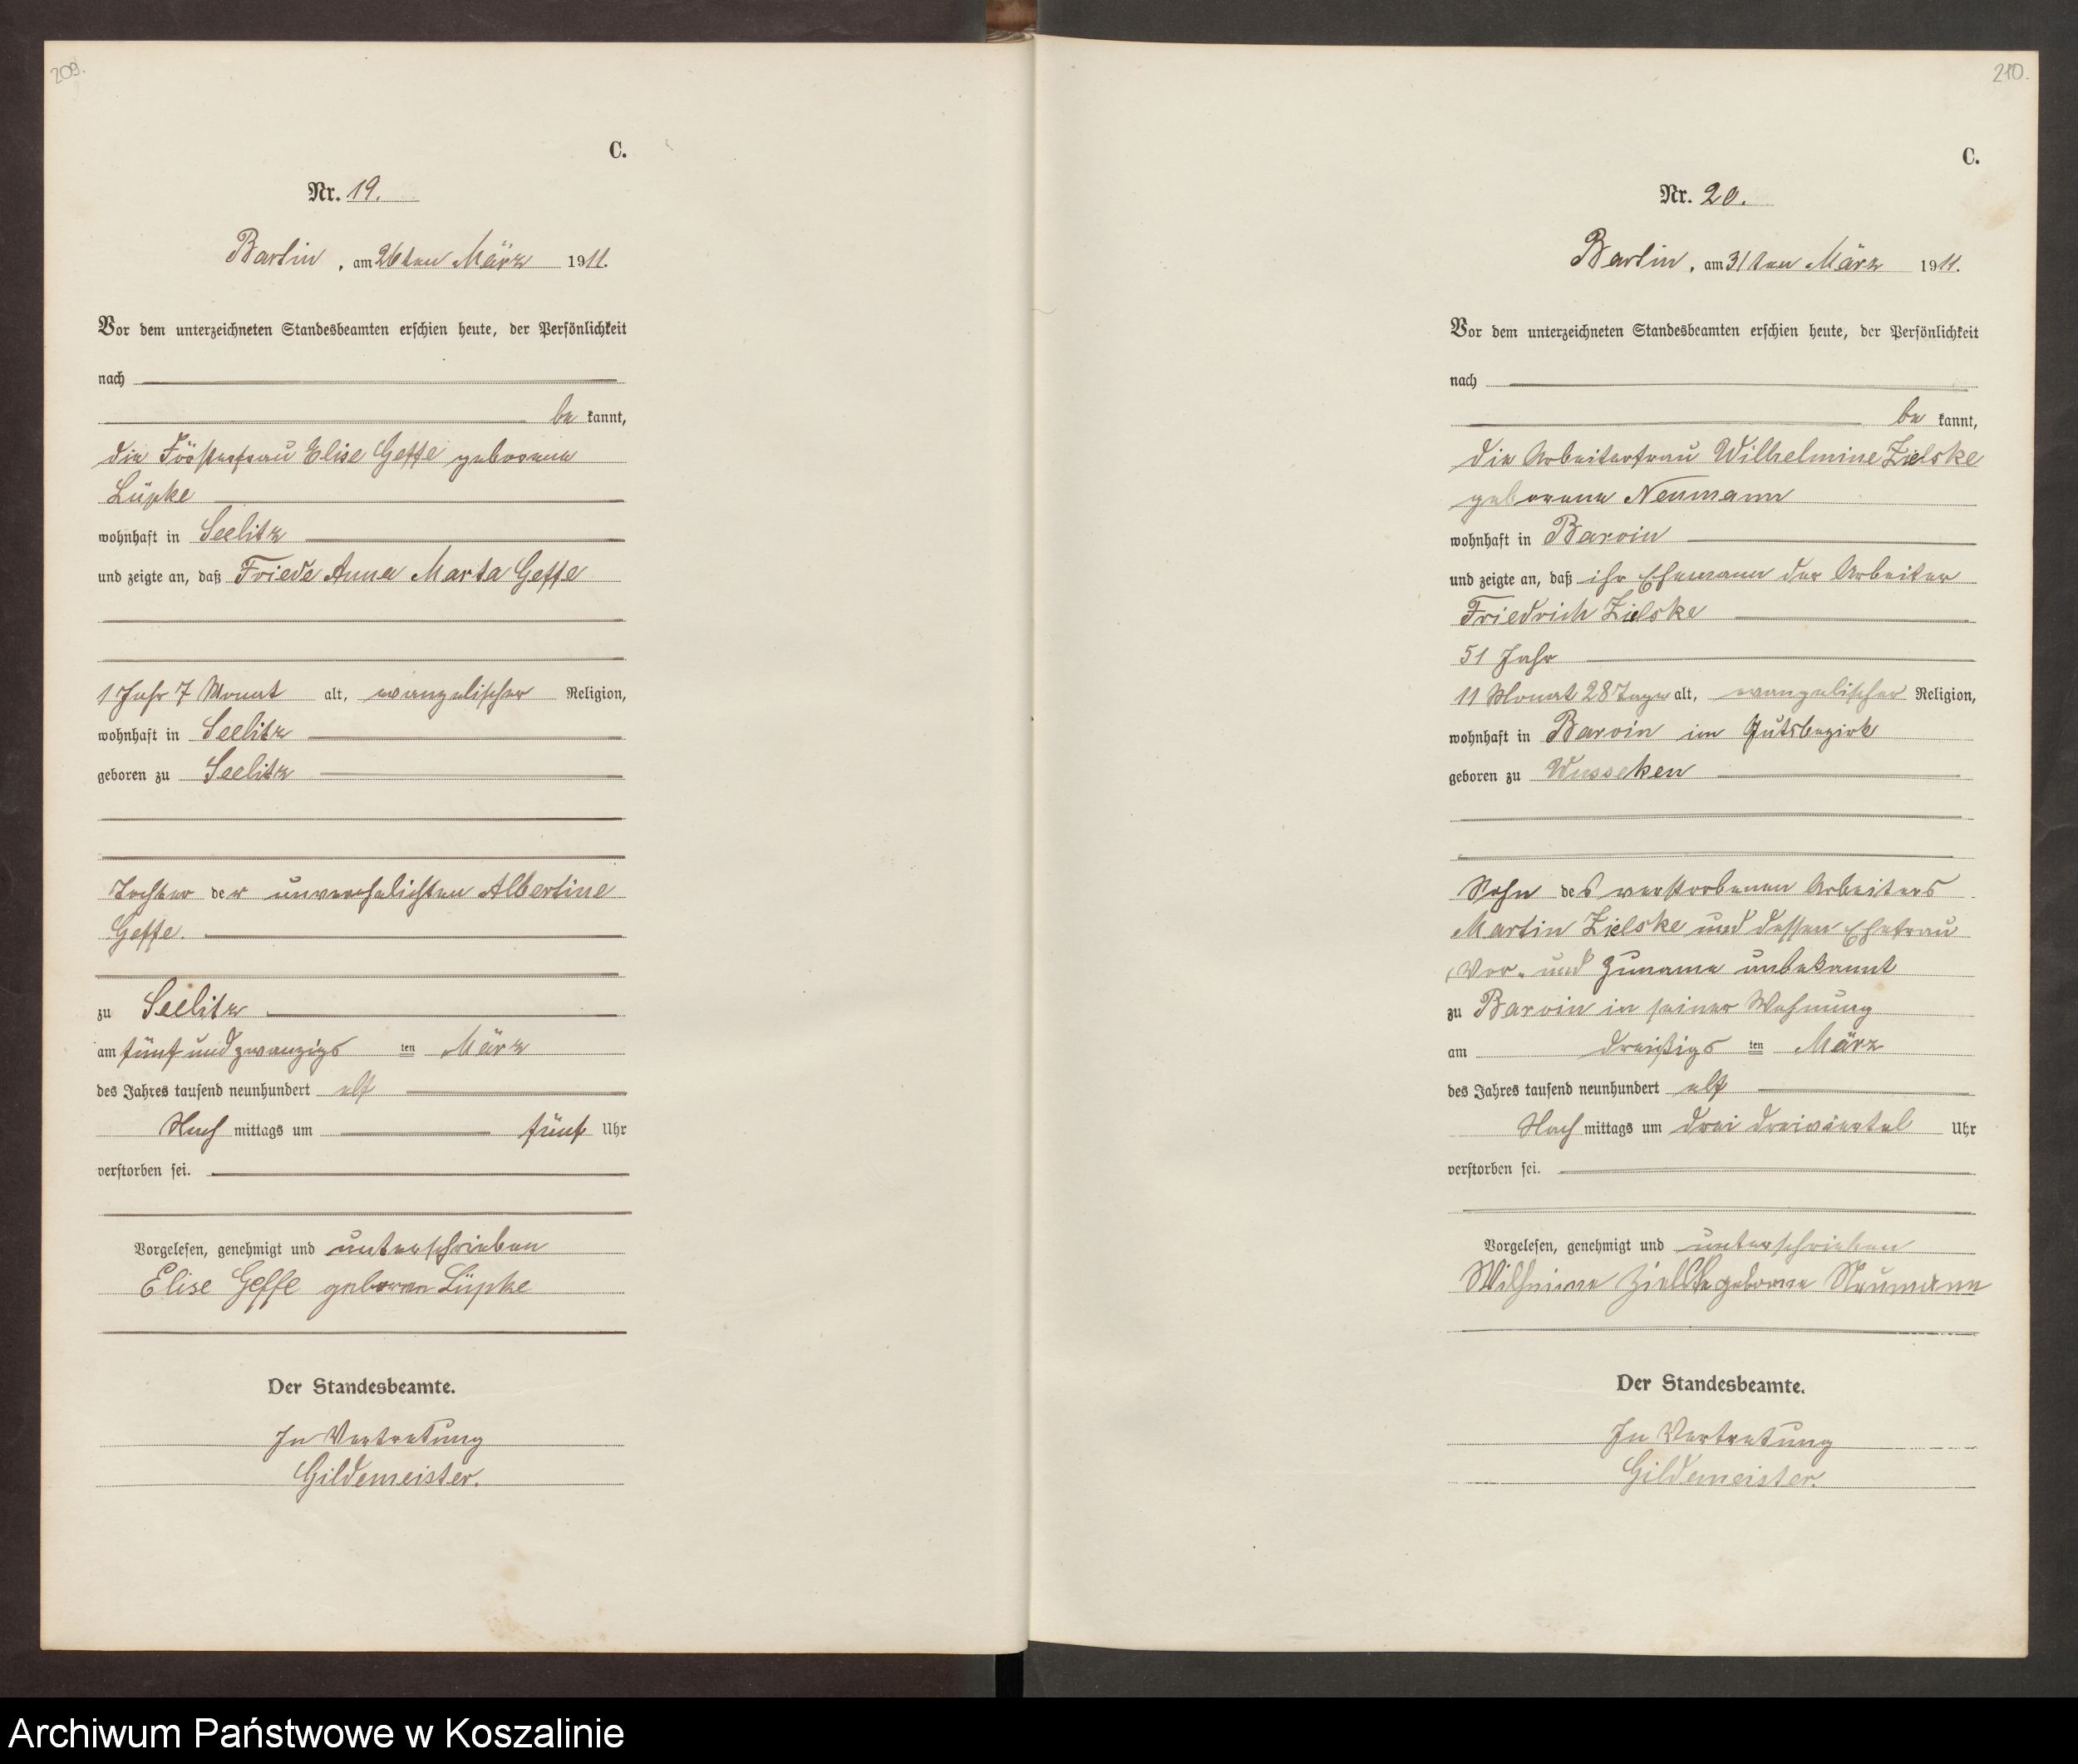 209.
C.
Nr. 19.
Bartin, am 26ten März 1911.
Vor dem unterzeichneten Standesbeamten erschien heute, der Persönlichkeit
nach
be kannt,
die Försterfrau Elise Geffe geborene
Lüpke
wohnhaft in Seelitz
und zeigte an, daß Friede Anna Marta Geffe
1 Jahr 7 Monat alt, evangelischer Religion,
wohnhaft in Seelitz
geboren zu Seelitz
Tochter der unverehelichten Albertine
Geffe.
zu Seelitz
am fünf und zwanzigs ten März
des Jahres tausend neunhundert elf
Nach mittags um fünf Uhr
verstorben sei.
Vorgelesen, genehmigt und unterschrieben
Elise Geffe geboren Lüpke
Der Standesbeamte.
In Vertretung
Gildemeister.
210.
C.
Nr. 20.
Bartin, am 31ten März 1911.
Vor dem unterzeichneten Standesbeamten erschien heute, der Persönlichkeit
nach
be kannt,
die Arbeiterfrau Wilhelmine Zielske
geborene Neumann
wohnhaft in Barvin
und zeigte an, daß ihr Ehemann der Arbeiter
Friedrich Zielske
51 Jahr
11 Monat 28 Tage alt, evangelischer Religion,
wohnhaft in Barvin im Gutsbezirk
geboren zu Wusseken
Sohn des verstorbenen Arbeiters
Martin Zielske und dessen Ehefrau
Vor- und Zuname unbekannt
zu Barvin in seiner Wohnung
am dreißigs ten März
des Jahres tausend neunhundert elf
Nach mittags um drei dreiviertel Uhr
verstorben sei.
Vorgelesen, genehmigt und unterschrieben
Wilhmine Zielske geborne Neumann
Der Standesbeamte.
In Vertretung
Gildemeister.
Archiwum Państwowe w Koszalinie